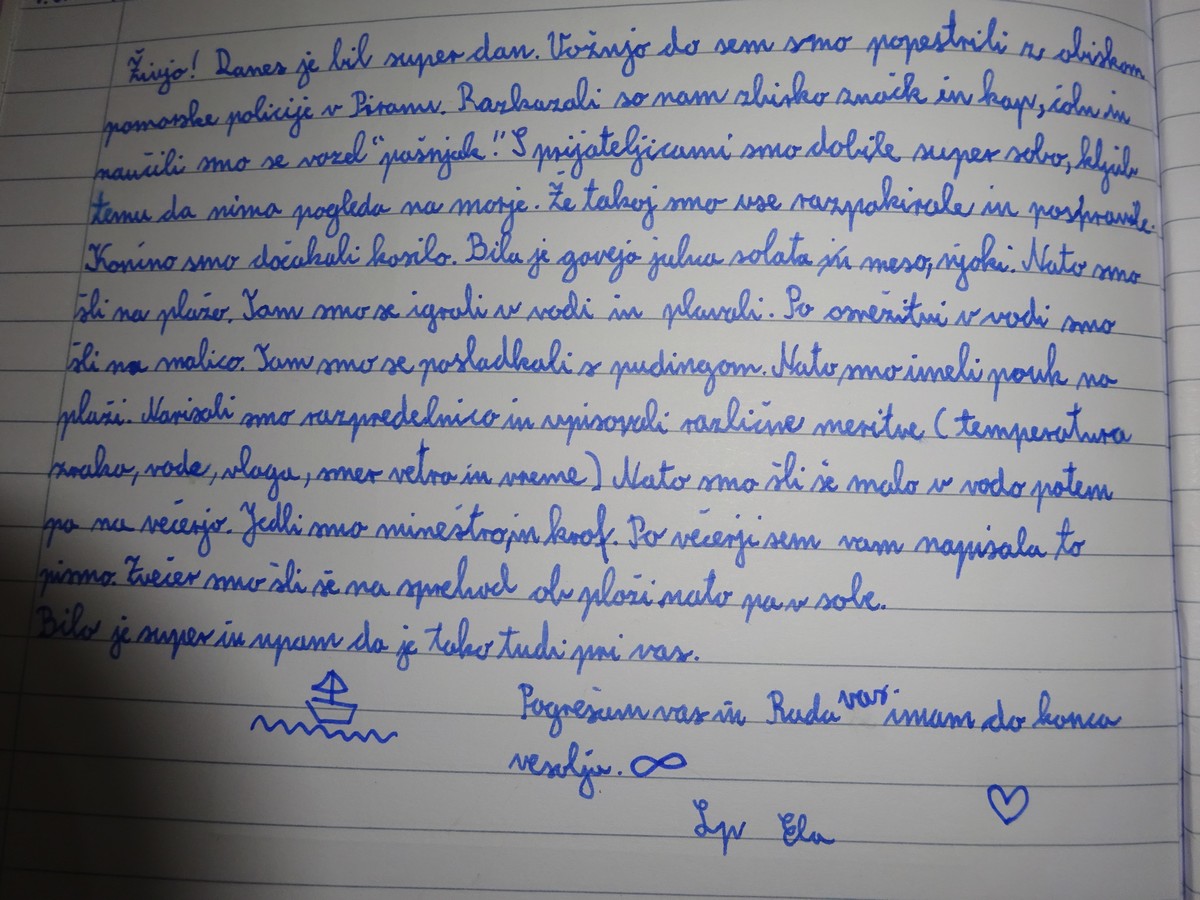 Živjo! Danes je bil super dan. Vožnjo do sem smo popestrili z obiskom
pomorske policije v Piranu. Razkazali so nam zbirko značk in kap, čoln in
naučili smo se vozel "pašnjak". S prijateljicami smo dobile super sobo, kljub
temu da nima pogleda na morje. Že takoj smo vse razpakirale in pospravile.
Končno smo dočakali kosilo. Bila je goveja juha solata in meso, njoki. Nato smo
šli na plažo. Tam smo se igrali v vodi in plavali. Po osvežitvi v vodi smo
šli na malico. Tam smo se posladkali s pudingom. Nato smo imeli pouk na
plaži. Narisali smo razpredelnico in vpisovali različne meritve (temperatura
zraka, vode, vlaga, smer vetra in vreme) Nato smo šli še malo v vodo potem
pa na večerjo. Jedli smo mineštro, in krof. Po večerji sem vam napisala to
pismo. Zvečer smo šli še na sprehod ob plaži nato pa v sobe.
Bilo je super in upam da je tako tudi pri vas.
Pogrešam vas in Rada vas imam do konca
vesolja. ∞
Lp Ela